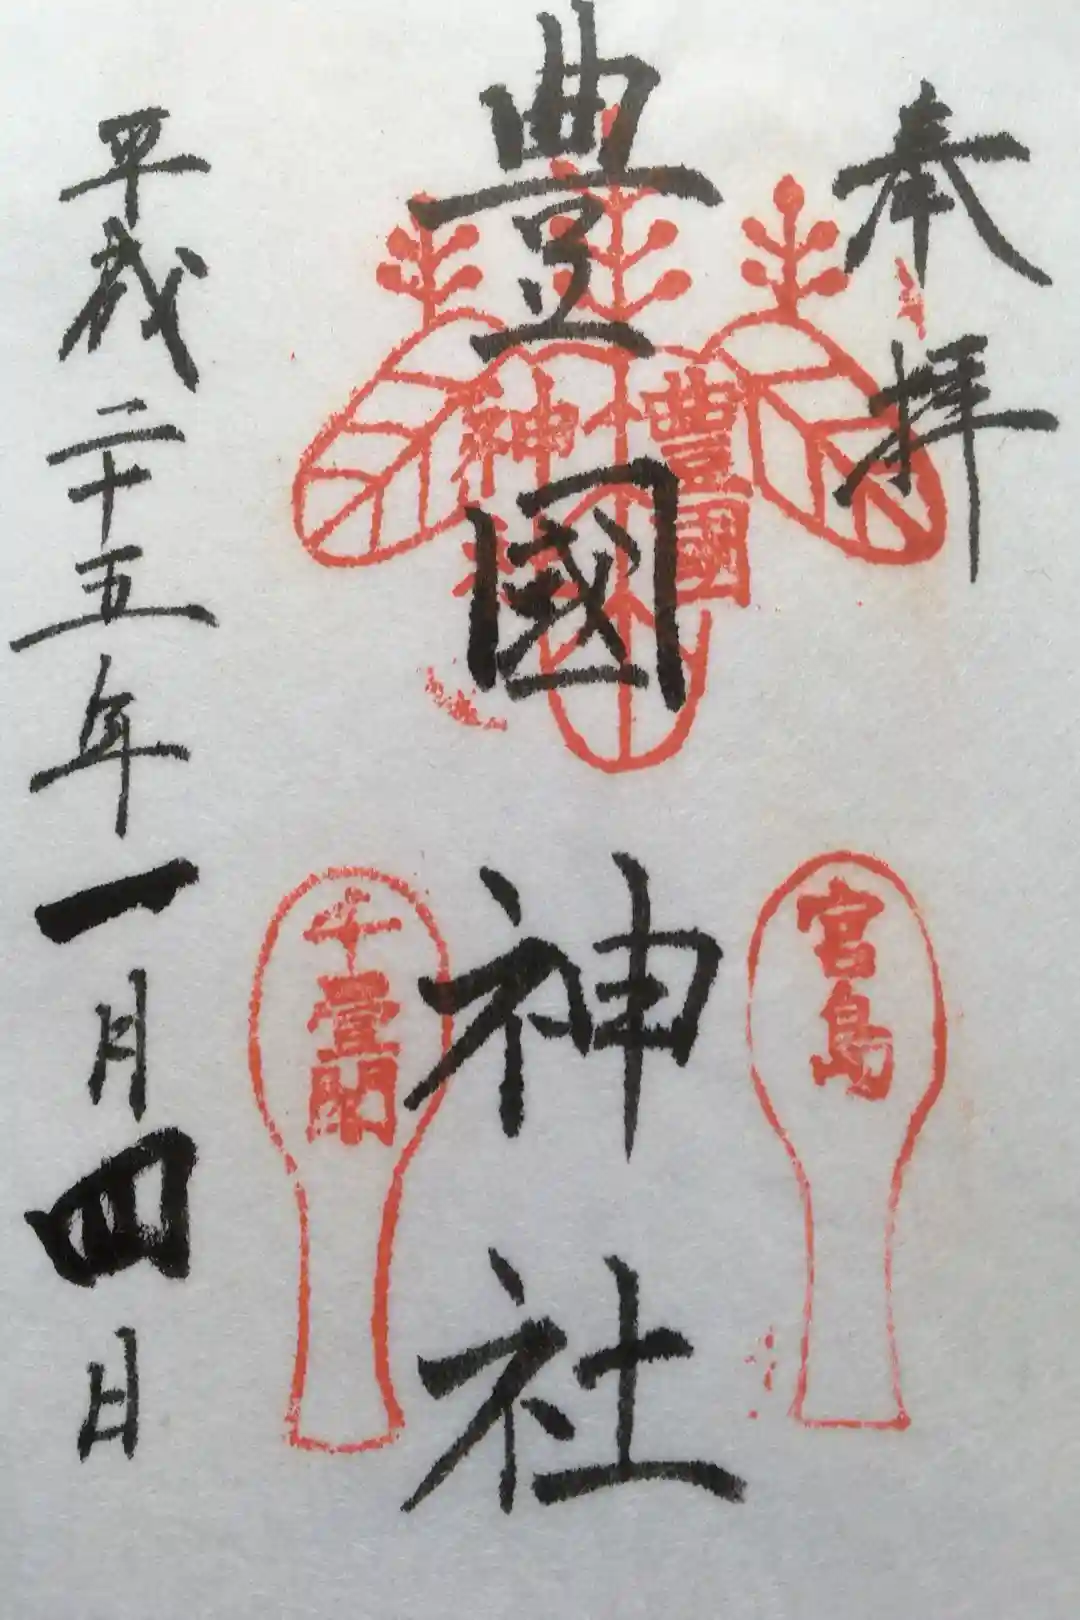 奉拝
豊國神社
平成二十五年一月四日
豊國
神社
宮島
千畳閣